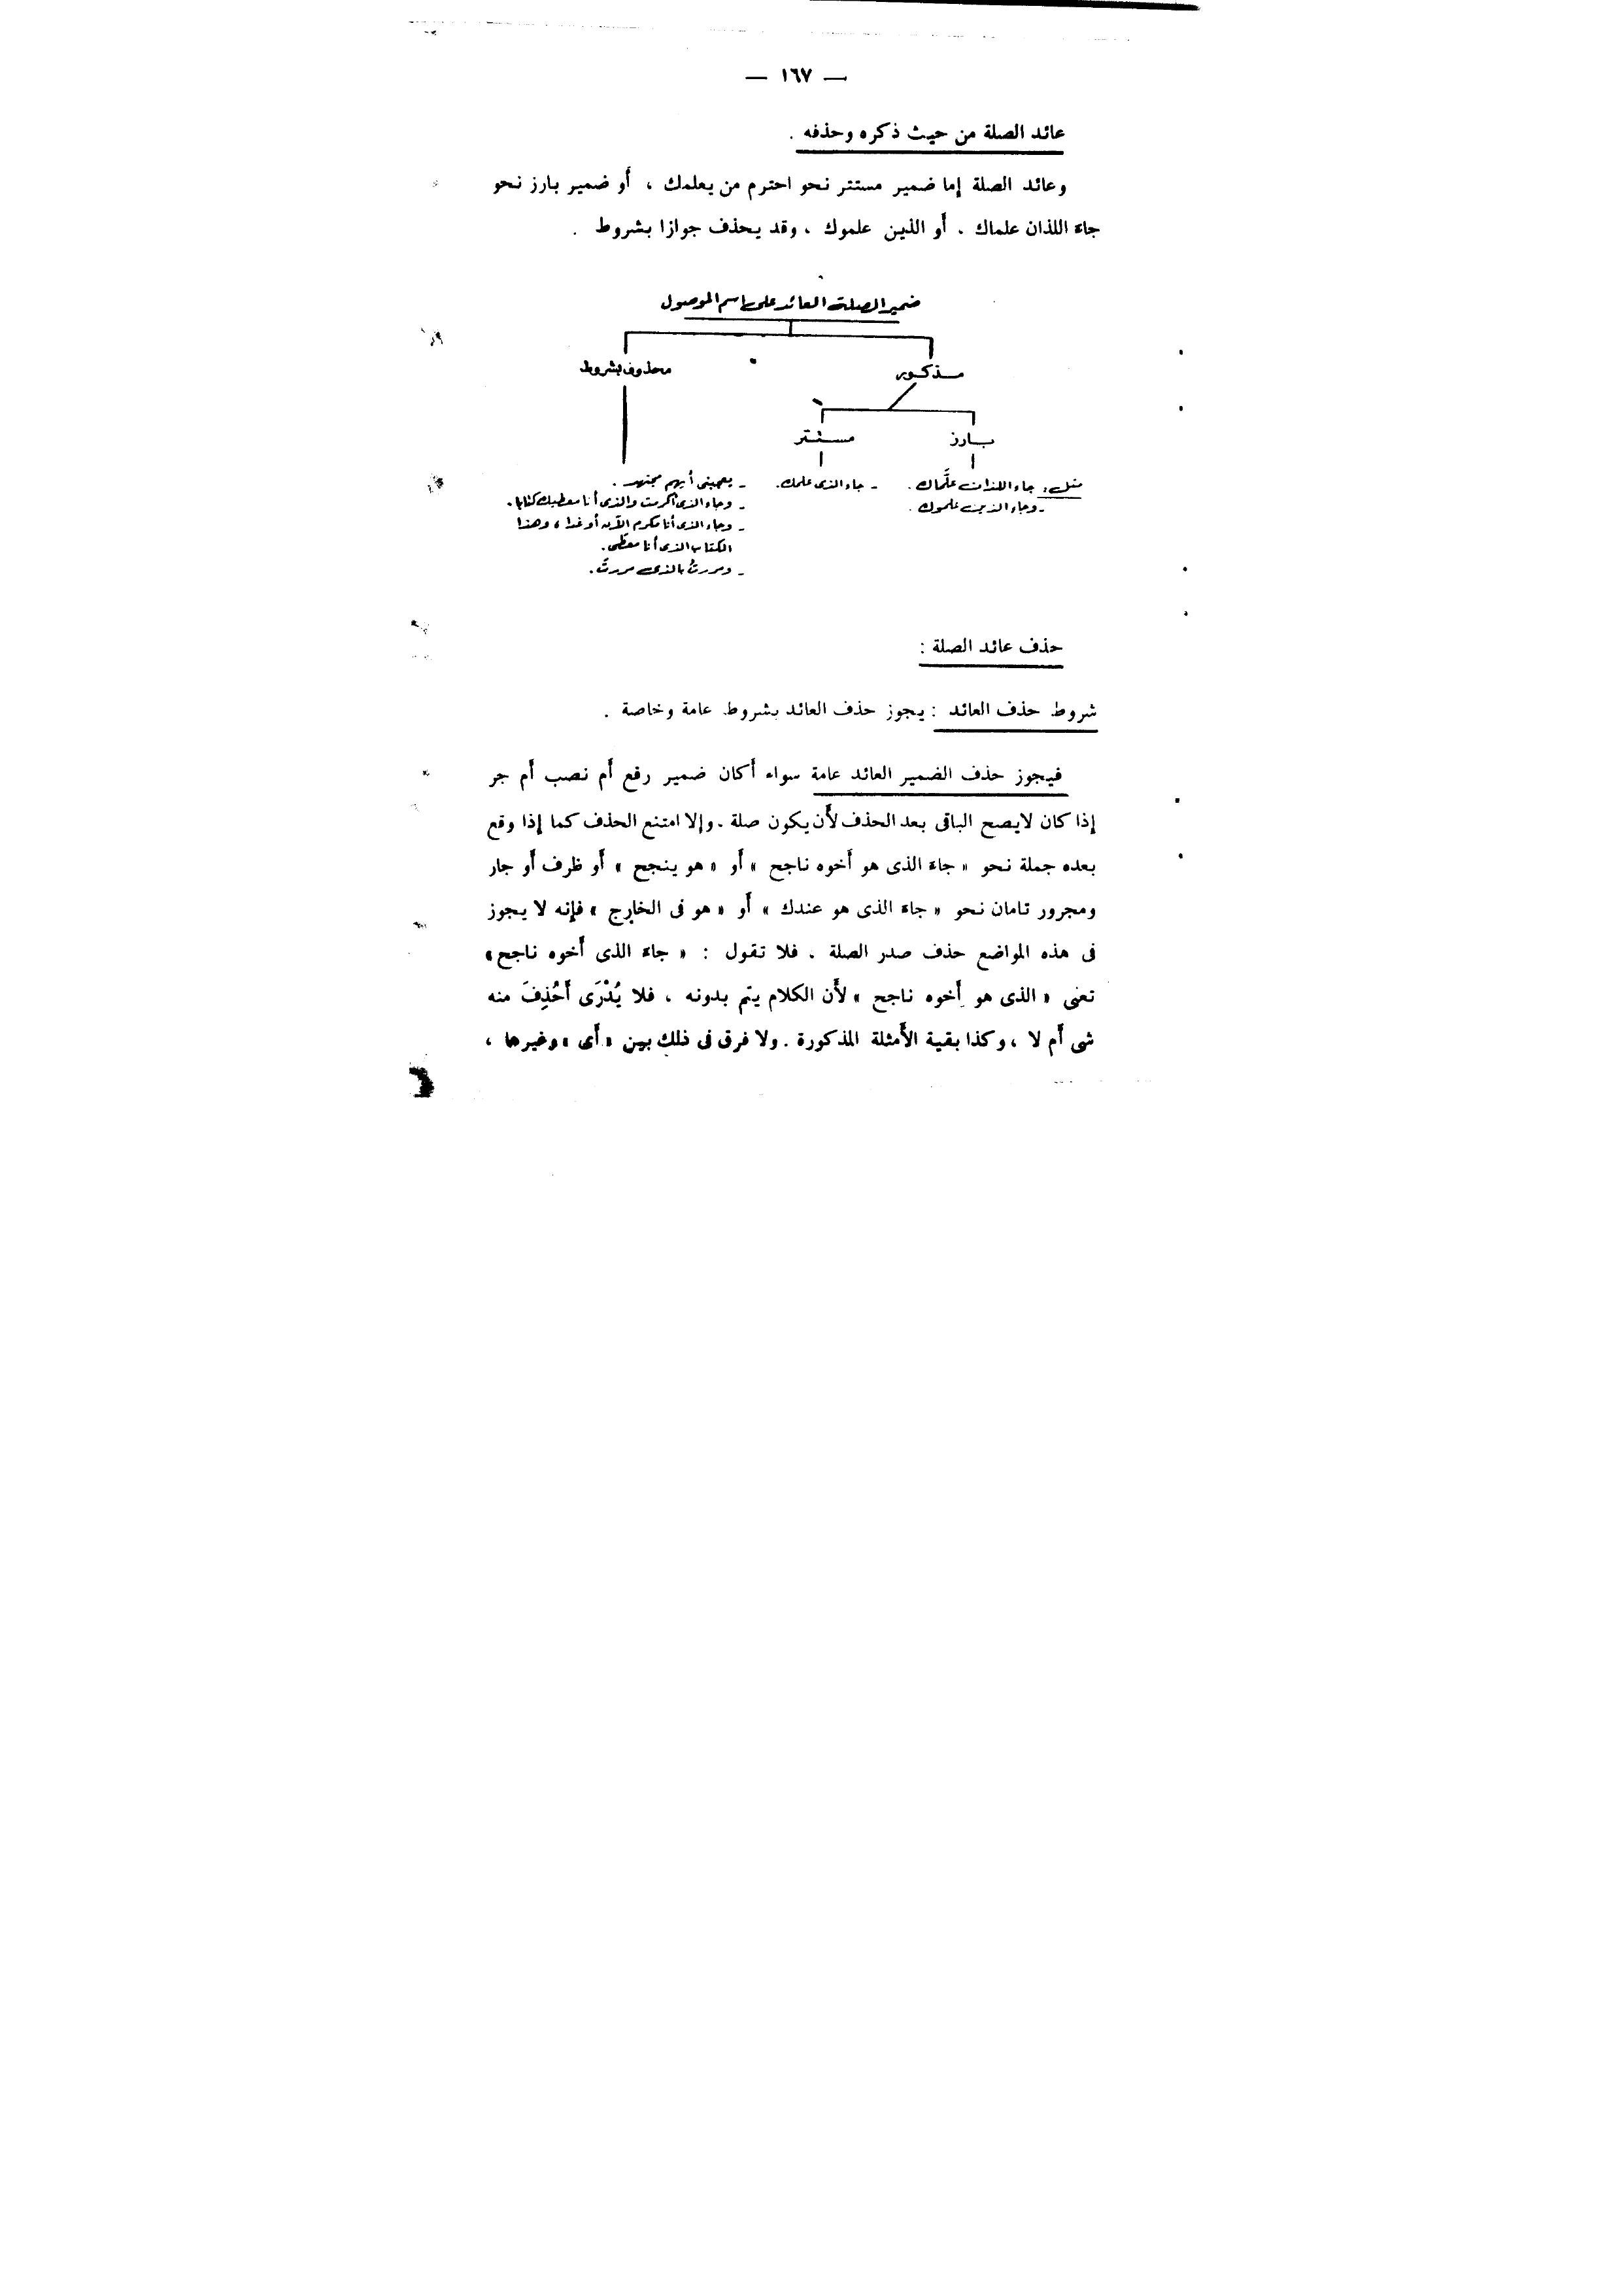 — ١٦٧ —
عائد الصلة من حيث ذكره وحذفه .
وعائد الصلة إما ضمير مستتر نحو احترم من يعلمك ، أو ضمير بارز نحو
جاء اللذان علماك . أو الذين علموك ، وقد يحذف جوازا بشروط .
ضمير الصلة العائد على اسم الموصول
مذكور
محذوف بشروط
بارز
مستتر
مثل : جاء اللذان علَّماك .
- وجاء الذين علموك .
- جاء الذى علمك .
- يعجبنى أيهم مجتهد .
- وجاء الذى أكرمت والذى أنا معطيك كتابا .
- وجاء الذى أنا مكرم الآن أو غدا ، وهذا
الكتاب الذى أنا معطى .
- ومررتُ بالذى مررت .
حذف عائد الصلة :
شروط حذف العائد : يجوز حذف العائد بشروط عامة وخاصة .
فيجوز حذف الضمير العائد عامة سواء أكان ضمير رفع أم نصب أم جر
إذا كان لايصح الباقى بعد الحذف لأن يكون صلة . وإلا امتنع الحذف كما إذا وقع
بعده جملة نحو « جاء الذى هو أخوه ناجح » أو « هو ينجح » أو ظرف أو جار
ومجرور تامان نحو « جاء الذى هو عندك » أو « هو فى الخارج » فإنه لا يجوز
فى هذه المواضع حذف صدر الصلة . فلا تقول : « جاء الذى أخوه ناجح »
تعنى « الذى هو أخوه ناجح » لأن الكلام يتم بدونه ، فلا يُدْرَى أَحُذِفَ منه
شى أم لا ، وكذا بقية الأمثلة المذكورة . ولا فرق فى ذلك بين « أى » وغيرها ،